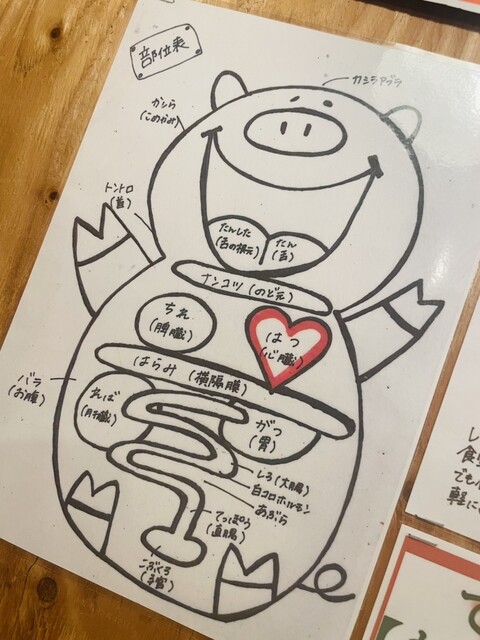 部位表
カシラアブラ
かしら
(こめかみ)
トントロ
(首)
たんした
(舌の根元)
たん
(舌)
ナンコツ (のど元)
ちれ
(脾臓)
はつ
(心臓)
はらみ (横隔膜)
バラ
(お腹)
れば
(肝臓)
がつ
(胃)
しろ (大腸)
白コロホルモン
あぶら
てっぽう
(直腸)
こぶくろ
(子宮)
レ
食
でも
軽に